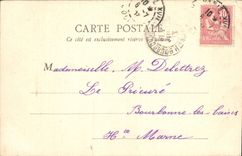 CARTE POSTALE
Ce côté est exclusivement réservé
Mademoiselle M. Delettrez
Le Prieuré
Bourbonne-les-bains
Hte Marne